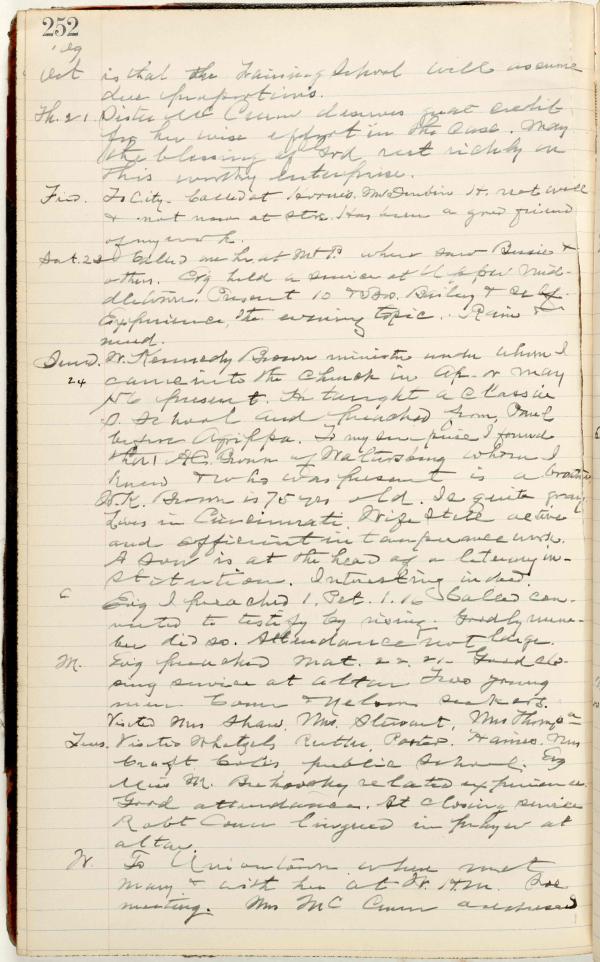 252
'89
Oct is that the Training School will assume
due proportions.
Th. 21. Sister Mc Cune deserves great credit
for her wise effort in the case. May
the blessing of God rest richly on
this worthy enterprise.
Frid. To City. Called at Horne's. H. not well
& not now at store. Has been a good friend
of my work.
Sat. 23 at Mt P. where saw Bessie &
others. Evg held a service at Upper Mid-
dletown. Present 10 & Bro.
Experience, the evening topic. Rain &
mud.
Sund. W. Kennedy Brown minister under whom I
24 came into the Church in Ap. or May
'56 present. He taught a class in
S. School and preached from, Paul
before Agrippa. To my surprise I found
that A.C. Brown of Waltersburg whom I
knew & who was present is a brother
W.K. Brown is 75 yrs old. Is quite gray
Lives in Cincinnati. Wife still active
and efficient in temperance work.
A son is at the head of a literary in-
stitution. Interesting indeed.
Evg I preached 1. Pet. 1.16 Called con-
verted to testify by rising. Goodly num-
ber did so. Attendance not large.
M. Evg preached Mat. 22. 21- Good clo-
sing service at altar Two young
men & Nelson seekers.
Visited Mrs Shaw, Mrs. Stewart, Mrs Thompson
Tues. Visited Whetzels, Porter, Haines, Mrs
public school. Evg
Miss M. related experience
Good attendance. At closing service
Robt lingered in prayer at
altar.
W. To Uniontown where met
Mary & with her at W. H.M. Soc
meeting. Mrs Mc Cune addressed